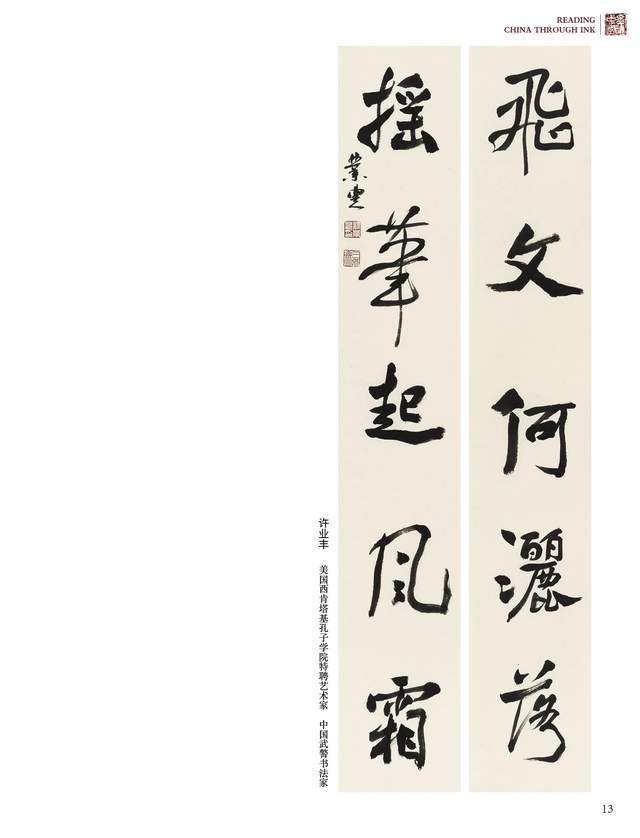 READING
CHINA THROUGH INK
飛文何灑落
搖筆起風霜
業豊
许业丰　美国西肯塔基孔子学院特聘艺术家　中国武警书法家
13